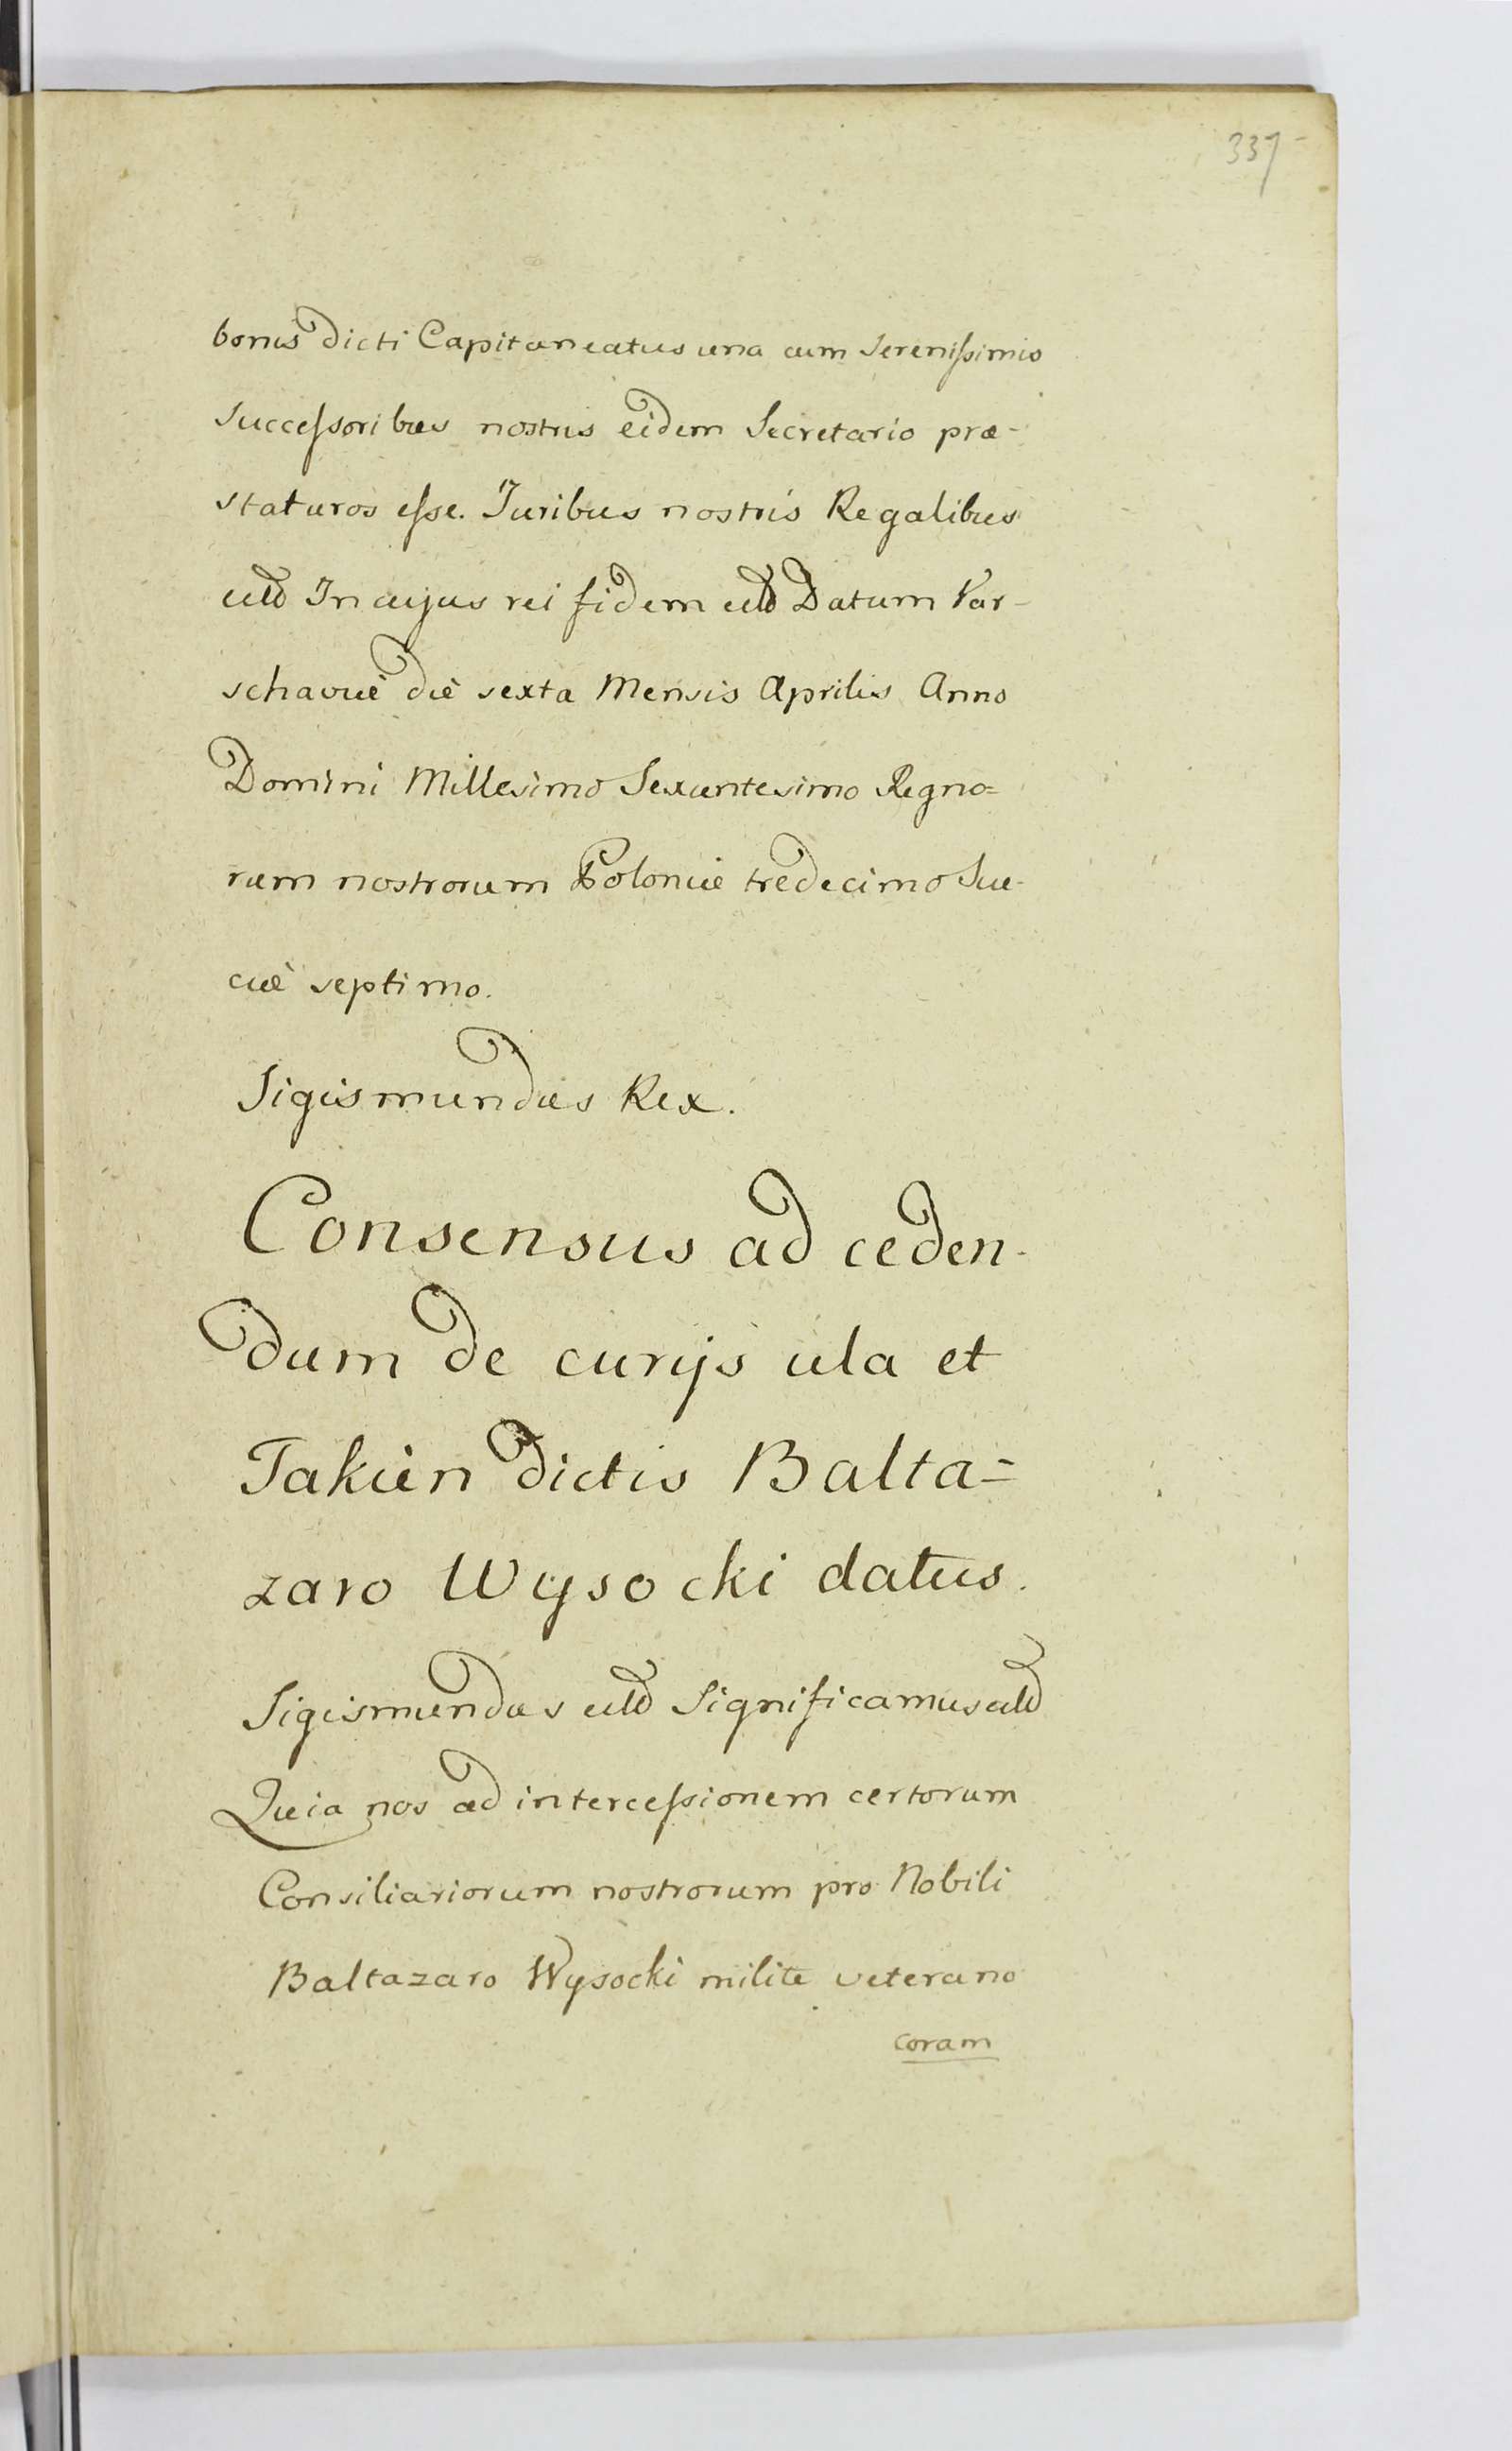 337
bonis dicti Capitaneatus una cum Serenissimis
Successoribus nostris eidem Secretario præ-
staturos esse. Juribus nostris Regalibus
In cujus rei fidem Datum Var-
schaviæ die sexta Mensis Aprilis Anno
Domini Millesimo Sexcentesimo Regno=
rum nostrorum Poloniæ tredecimo Sue-
ciæ septimo.
Sigismundus Rex.
Consensus ad ceden-
dum de curijs ula et
Takien dictis Balta=
zaro Wysocki datus.
Sigismundus Significamus
Quia nos ad intercessionem certorum
Consiliariorum nostrorum pro Nobili
Baltazaro Wysocki milite veterano
coram